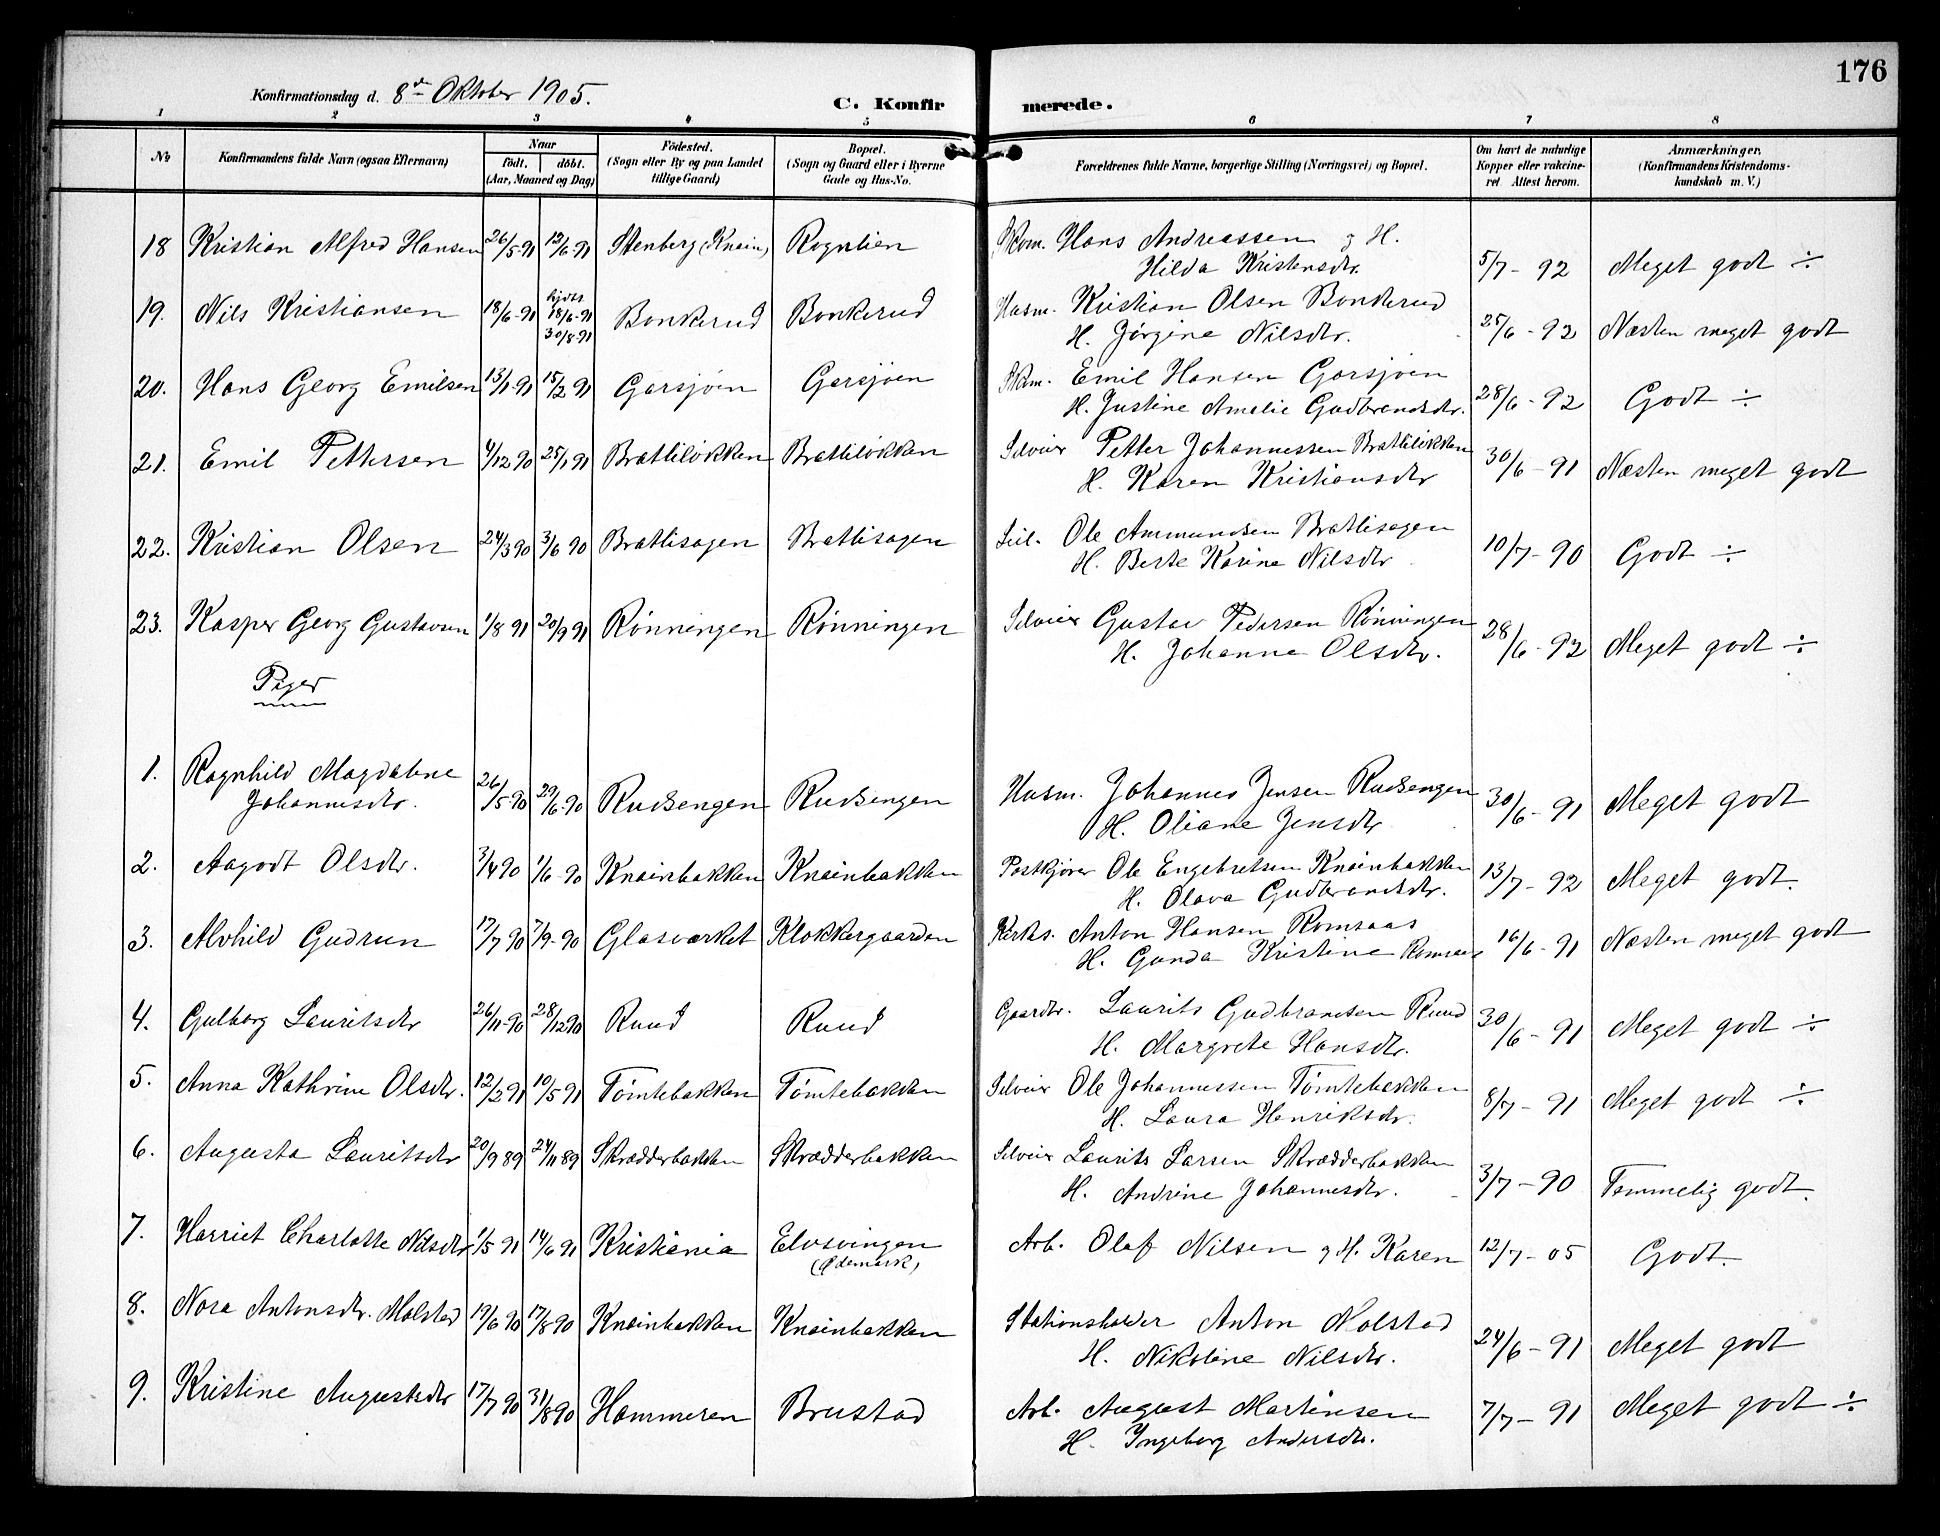 176
Konfirmationsdag d. 8de Oktober 1905.
C. Konfirmerede.
1 2 3 4 5 6 7 8
No
Konfirmandens fulde Navn (ogsaa Efternavn)
Naar
födt. döbt.
(Aar, Maaned og Dag)
Födested.
(Sogn eller By og paa Landet
tillige Gaard)
Bopæl.
(Sogn og Gaard eller i Byerne
Gade og Hus-No.
Forældrenes fulde Navne, borgerlige Stilling (Næringsvei) og Bopæl.
Om havt de naturlige
Kopper eller vakcine-
ret. Attest herom.
Anmærkninger,
(Konfirmandens Kristendoms-
kundskab m. V.)
18 Kristian Alfred Hansen 26/5-91 12/6-91 Stenberg (Knain) Rognlien Skom. Hans Andreassen g H.
Hilda Kristensdtr. 5/7-92 Meget godt ÷
19. Nils Kristiansen 18/6-91 hjdt. 18/6-91 30/8-91 Bonkerud Bonkerud Husm. Kristian Olsen Bonkerud
H. Jørgine Nilsdtr. 25/6-92 Næsten meget godt
20. Hans Georg Emilsen 13/1-91 15/2 91 Garsjøen Garsjøen Skom. Emil Hansen Garsjøen
H. Justine Amalie Gudbrandsdtr. 28/6-92 Godt ÷
21. Emil Pettersen 4/12 90 25/1 91 Brætliløkken Brætliløkken Selveier Petter Johannessen Brætliløkken
H. Karen Kristiansdtr 30/6-91 Næsten meget godt
22. Kristian Olsen 24/3 90 3/6 90 Brætlisagen Brætlisagen Sel. Ole Ammundsen Brætlisagen
H. Berte Karine Nilsdtr 10/7-90 Godt ÷
23. Kasper Georg Gustavsen 1/8 91 20/9 91 Rønningen Rønningen Selveier Gustav Pedersen Rønningen
H. Johanne Olsdtr. 28/6-92 Meget godt ÷
Piger
1. Ragnhild Magdalene
Johannesdtr. 26/5-90 29/6-90 Rudsengen Rudsengen Husm. Johannes Jensen Rudsengen
H. Oliane Jensdtr 30/6-91 Meget godt
2. Aagodt Olsdtr. 3/4 90 1/6-90 Knainbakken Knainbakken Postkjører Ole Engebretsen Knainbakken
H. Olava Gudbrandsdtr. 13/7-92 Meget godt.
3. Alvhild Gudrun 17/7 90 7/9-90 Glasværket Klokkergaarden Kirkes. Anton Hansen Romsaas
H. Gunda Kristine Romsaas 16/6-91 Næsten meget godt
4. Gulborg Lauritsdtr 26/11-90 28/12 90 Ruud Ruud Gaardbr. Laurits Gudbrandsen Ruud
H. Margrete Hansdtr. 30/6-91 Meget godt ÷
5. Anna Kathrine Olsdtr. 12/2 91 10/5 91 Tømtebakken Tømtebakken Selveier Ole Johannessen Tømtebakken
H. Laura Henriksdtr. 8/7-91 Meget godt ÷
6. Augusta Lauritsdtr 20/9 89 24/11 89 Skrædderbakken Skrædderbakken Selveier Laurits Larsen Skrædderbakken
H. Andrine Johannesdtr. 3/7-90 Temmelig godt.
7. Harriet Charlotte Nilsdtr 1/5 91 14/6 91 Kristiania Elvsvingen
(Ødemark) Arb. Olaf Nilsen g H. Karen 12/7-05 Godt.
8. Nora Antonsdtr. Molstad 19/6 90 17/8 90 Knainbakken Knainbakken Stationsholder Anton Molstad
H. Nikoline Nilsdtr. 24/6-91 Meget godt
9. Kristine Augustsdtr 17/7 90 31/8 90 Hammeren Brustad Arb. August Martinsen
H. Ingeborg Andersdtr. 7/7-91 Meget godt ÷